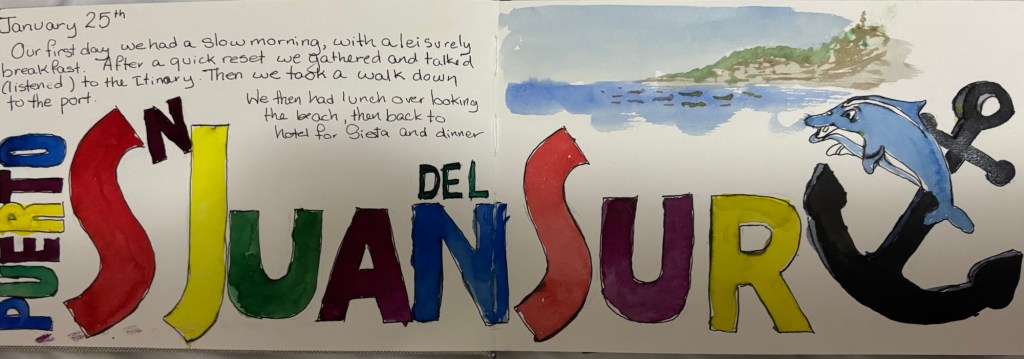 January 25th
Our first day we had a slow morning, with a leisurely
breakfast. After a quick reset we gathered and talked
(listened) to the Itinary. Then we took a walk down
to the port.
We then had lunch over looking
the beach, then back to
hotel for Siesta and dinner
PUERTO
SN JUAN DEL SUR